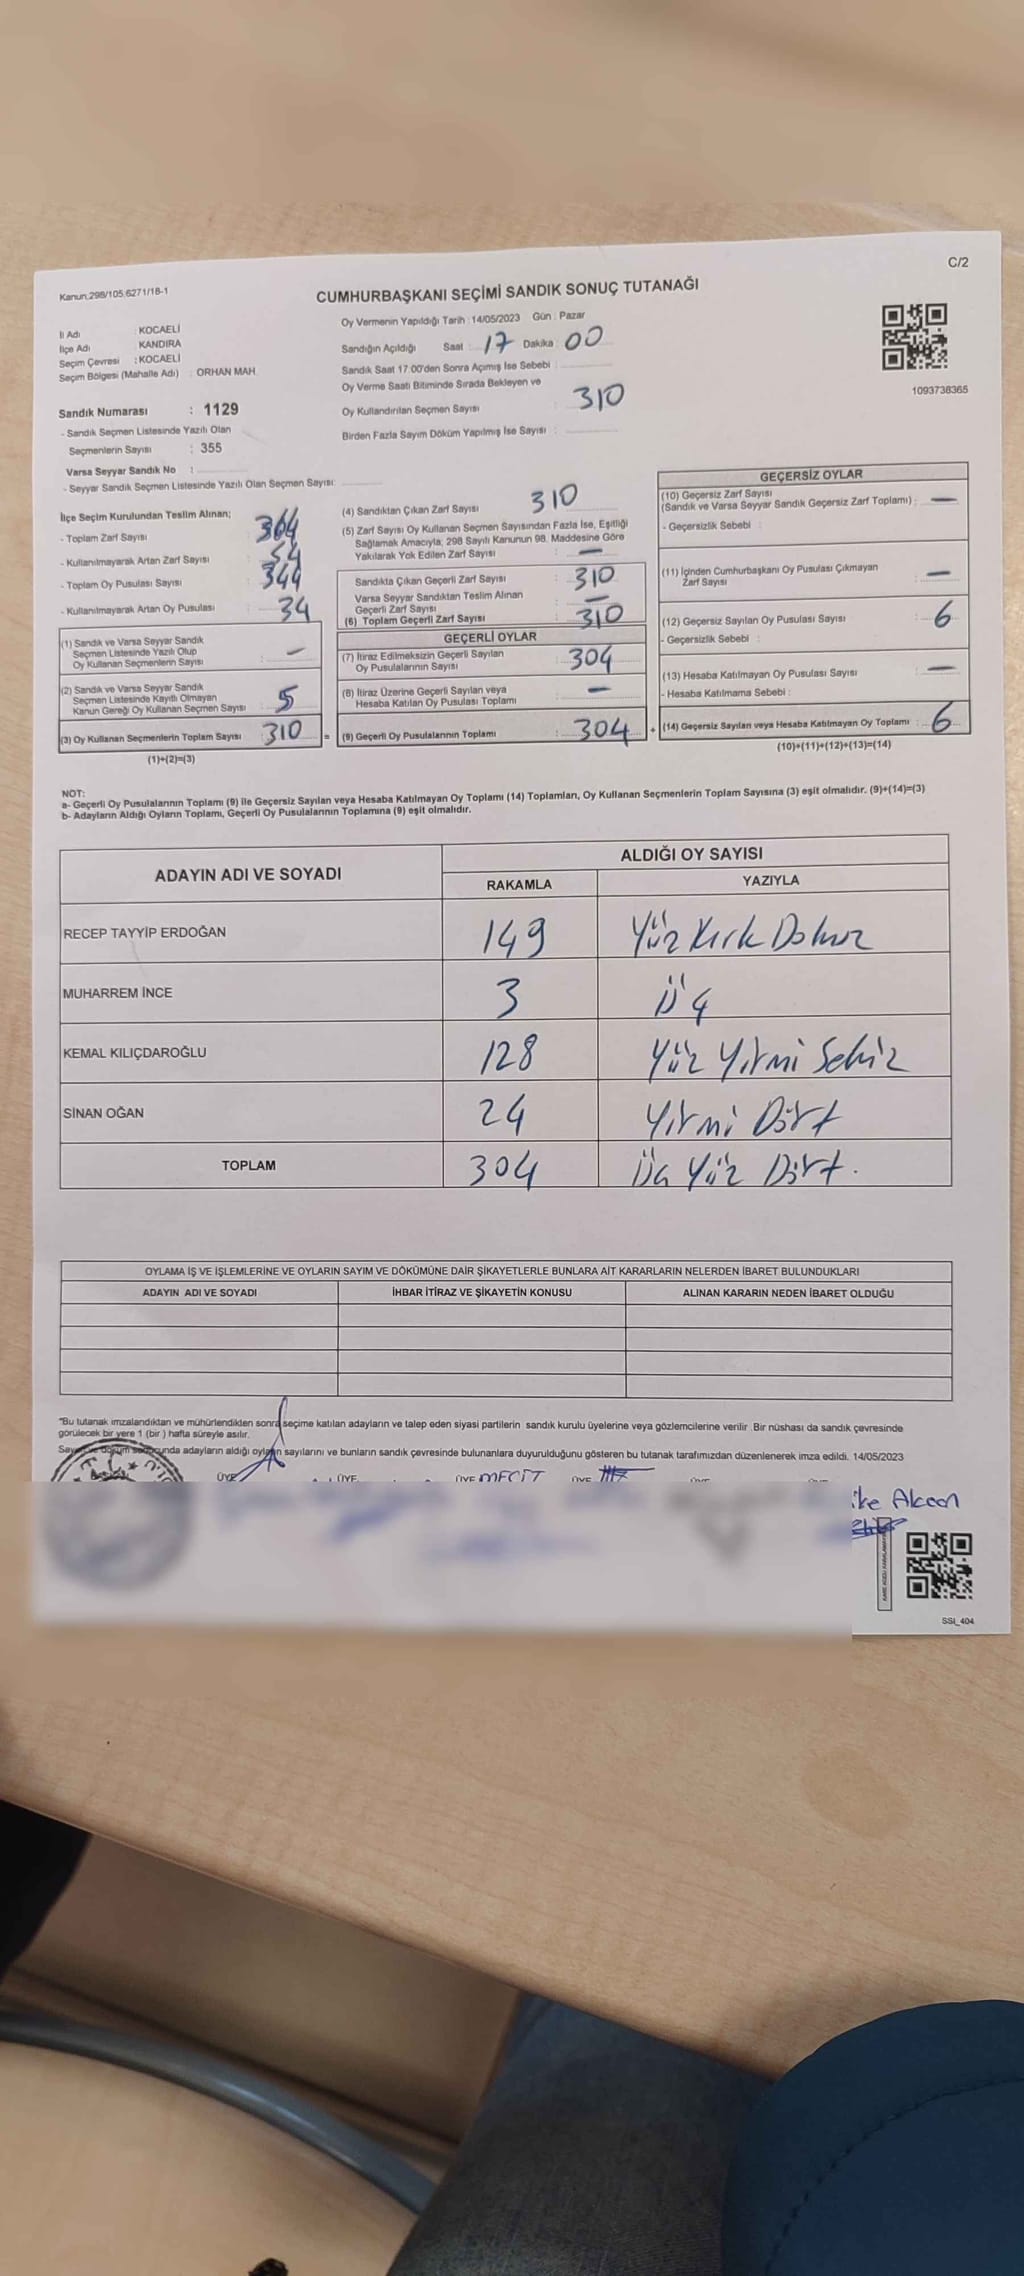 C/2
Kanun.298/105,6271/18-1
CUMHURBAŞKANI SEÇİMİ SANDIK SONUÇ TUTANAĞI
İl Adı : KOCAELİ
İlçe Adı : KANDIRA
Seçim Çevresi : KOCAELİ
Seçim Bölgesi (Mahalle Adı) : ORHAN MAH.
Sandık Numarası : 1129
- Sandık Seçmen Listesinde Yazılı Olan
Seçmenlerin Sayısı : 355
Varsa Seyyar Sandık No :
- Seyyar Sandık Seçmen Listesinde Yazılı Olan Seçmen Sayısı:
Oy Vermenin Yapıldığı Tarih : 14/05/2023 Gün : Pazar
Sandığın Açıldığı Saat : 17 Dakika : 00
Sandık Saat 17:00'den Sonra Açımış İse Sebebi :
Oy Verme Saati Bitiminde Sırada Bekleyen ve
Oy Kullandırılan Seçmen Sayısı : 310
Birden Fazla Sayım Döküm Yapılmış İse Sayısı :
1093738365
İlçe Seçim Kurulundan Teslim Alınan;
- Toplam Zarf Sayısı : 364
- Kullanılmayarak Artan Zarf Sayısı : 54
- Toplam Oy Pusulası Sayısı : 344
- Kullanılmayarak Artan Oy Pusulası : 34
(1) Sandık ve Varsa Seyyar Sandık
Seçmen Listesinde Yazılı Olup
Oy Kullanan Seçmenlerin Sayısı : -
(2) Sandık ve Varsa Seyyar Sandık
Seçmen Listesinde Kayıtlı Olmayan
Kanun Gereği Oy Kullanan Seçmen Sayısı : 5
(3) Oy Kullanan Seçmenlerin Toplam Sayısı : 310 =
(1)+(2)=(3)
(4) Sandıktan Çıkan Zarf Sayısı : 310
(5) Zarf Sayısı Oy Kullanan Seçmen Sayısından Fazla İse, Eşitliği
Sağlamak Amacıyla; 298 Sayılı Kanunun 98. Maddesine Göre
Yakılarak Yok Edilen Zarf Sayısı : -
Sandıkta Çıkan Geçerli Zarf Sayısı : 310
Varsa Seyyar Sandıktan Teslim Alınan
Geçerli Zarf Sayısı : -
(6) Toplam Geçerli Zarf Sayısı : 310
GEÇERLİ OYLAR
(7) İtiraz Edilmeksizin Geçerli Sayılan
Oy Pusulalarının Sayısı : 304
(8) İtiraz Üzerine Geçerli Sayılan veya
Hesaba Katılan Oy Pusulası Toplamı : -
(9) Geçerli Oy Pusulalarının Toplamı : 304 +
GEÇERSİZ OYLAR
(10) Geçersiz Zarf Sayısı
(Sandık ve Varsa Seyyar Sandık Geçersiz Zarf Toplamı) : -
- Geçersizlik Sebebi :
(11) İçinden Cumhurbaşkanı Oy Pusulası Çıkmayan
Zarf Sayısı : -
(12) Geçersiz Sayılan Oy Pusulası Sayısı : 6
- Geçersizlik Sebebi :
(13) Hesaba Katılmayan Oy Pusulası Sayısı : -
- Hesaba Katılmama Sebebi :
(14) Geçersiz Sayılan veya Hesaba Katılmayan Oy Toplamı : 6
(10)+(11)+(12)+(13)=(14)
NOT:
a- Geçerli Oy Pusulalarının Toplamı (9) ile Geçersiz Sayılan veya Hesaba Katılmayan Oy Toplamı (14) Toplamları, Oy Kullanan Seçmenlerin Toplam Sayısına (3) eşit olmalıdır. (9)+(14)=(3)
b- Adayların Aldığı Oyların Toplamı, Geçerli Oy Pusulalarının Toplamına (9) eşit olmalıdır.
ADAYIN ADI VE SOYADI ALDIĞI OY SAYISI
RAKAMLA YAZIYLA
RECEP TAYYİP ERDOĞAN 149 Yüz Kırk Dokuz
MUHARREM İNCE 3 Üç
KEMAL KILIÇDAROĞLU 128 Yüz Yirmi Sekiz
SİNAN OĞAN 24 Yirmi Dört
TOPLAM 304 Üç Yüz Dört.
OYLAMA İŞ VE İŞLEMLERİNE VE OYLARIN SAYIM VE DÖKÜMÜNE DAİR ŞİKAYETLERLE BUNLARA AİT KARARLARIN NELERDEN İBARET BULUNDUKLARI
ADAYIN ADI VE SOYADI İHBAR İTİRAZ VE ŞİKAYETİN KONUSU ALINAN KARARIN NEDEN İBARET OLDUĞU
*Bu tutanak imzalandıktan ve mühürlendikten sonra seçime katılan adayların ve talep eden siyasi partilerin sandık kurulu üyelerine veya gözlemcilerine verilir. Bir nüshası da sandık çevresinde
görülecek bir yere 1 (bir ) hafta süreyle asılır.
Sayım ve döküm sonucunda adayların aldığı oyların sayılarını ve bunların sandık çevresinde bulunanlara duyurulduğunu gösteren bu tutanak tarafımızdan düzenlenerek imza edildi. 14/05/2023
ÜYE ÜYE ÜYE MECİT ÜYE
SSI_404